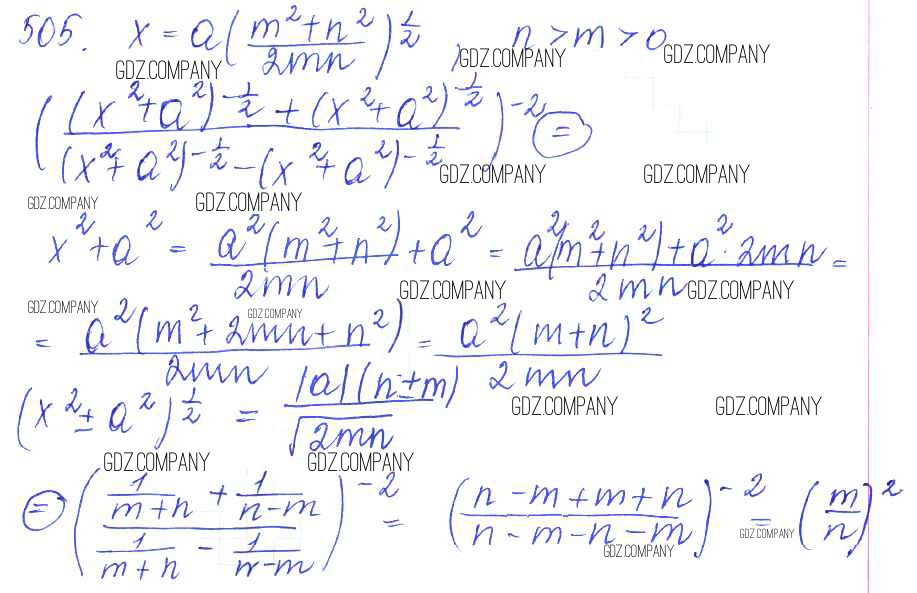 505. x = a((m²+n²)/(2mn))^(1/2), n > m > 0
GDZ.COMPANY GDZ.COMPANY GDZ.COMPANY
(((x²+a²)^(-1/2) + (x²+a²)^(-1/2))/((x²+a²)^(-1/2) - (x²+a²)^(-1/2)))^(-2) =
GDZ.COMPANY GDZ.COMPANY
GDZ.COMPANY GDZ.COMPANY
x²+a² = (a²(m²+n²))/(2mn) + a² = (a²(m²+n²)+a²·2mn)/(2mn) =
GDZ.COMPANY GDZ.COMPANY
GDZ.COMPANY GDZ.COMPANY
= (a²(m²+2mn+n²))/(2mn) = (a²(m+n)²)/(2mn)
(x²±a²)^(1/2) = (|a|(n±m))/√(2mn)
GDZ.COMPANY GDZ.COMPANY
GDZ.COMPANY GDZ.COMPANY
= ((1/(m+n) + 1/(n-m))/(1/(m+n) - 1/(n-m)))^(-2) = ((n-m+m+n)/(n-m-n-m))^(-2) = (m/n)²
GDZ.COMPANY GDZ.COMPANY